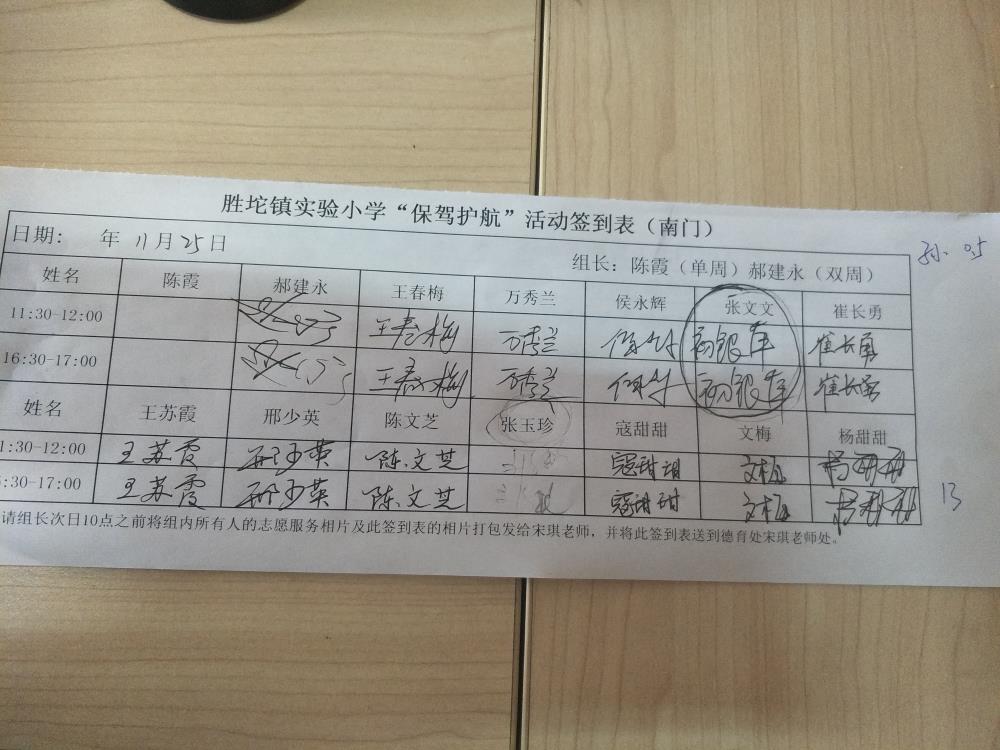 胜坨镇实验小学“保驾护航”活动签到表（南门）
日期： 年 11月 25日 组长：陈霞（单周）郝建永（双周）
孙 0.5
姓名 陈霞 郝建永 王春梅 万秀兰 侯永辉 张文文 崔长勇
11:30-12:00 王春梅 万秀兰 崔长勇
16:30-17:00 王春梅 万秀兰 崔长勇
姓名 王苏霞 邢少英 陈文芝 张玉珍 寇甜甜 文梅 杨甜甜
1:30-12:00 王苏霞 邢少英 陈文芝 寇甜甜 文梅
6:30-17:00 王苏霞 邢少英 陈文芝 寇甜甜 文梅
13
请组长次日10点之前将组内所有人的志愿服务相片及此签到表的相片打包发给宋琪老师，并将此签到表送到德育处宋琪老师处。